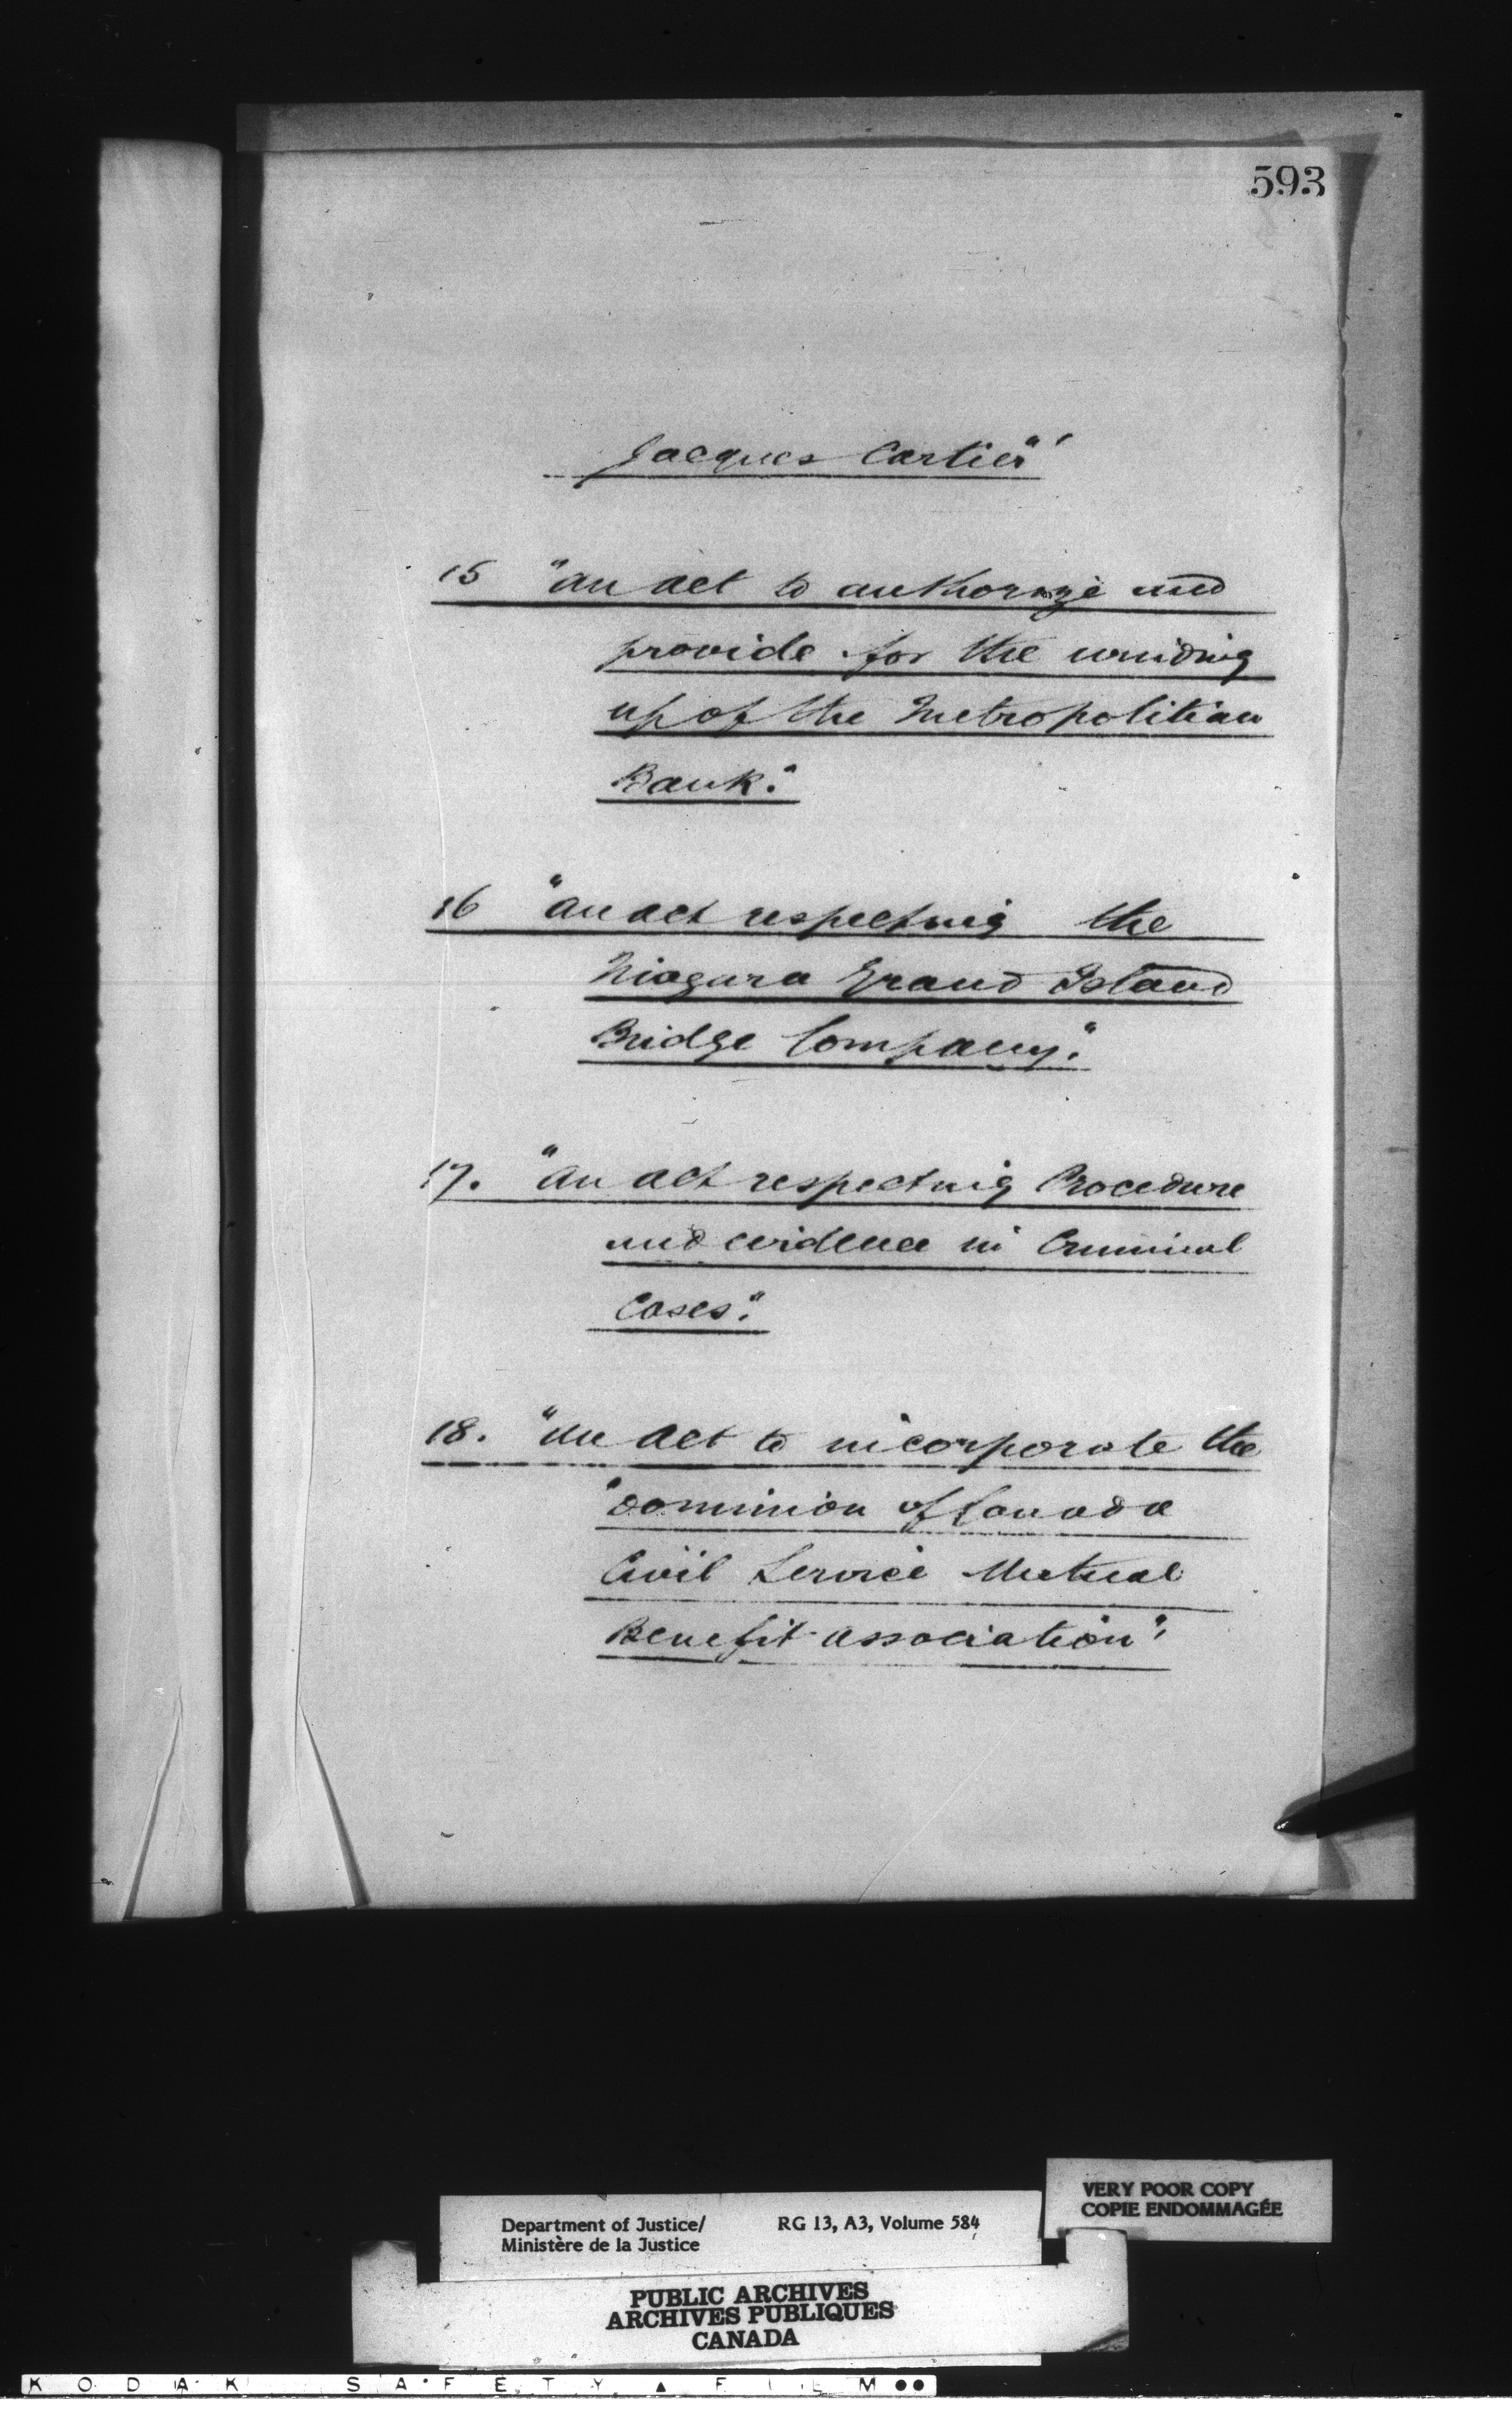 593
Jacques Cartier"
15 "an act to authorize and
provide for the winding
up of the Metropolitian
Bank."
16 "an act respecting the
Niagara Grand Island
Bridge Company."
17. "an act respecting Procedure
and evidence in Criminal
Cases."
18. "An Act to incorporate the
"Dominion of Canada
Civil Service Mutual
Benefit association".
VERY POOR COPY
COPIE ENDOMMAGÉE
Department of Justice/ RG 13, A3, Volume 584
Ministère de la Justice
PUBLIC ARCHIVES
ARCHIVES PUBLIQUES
CANADA
KODAK SAFETY ▲ FILM ●●